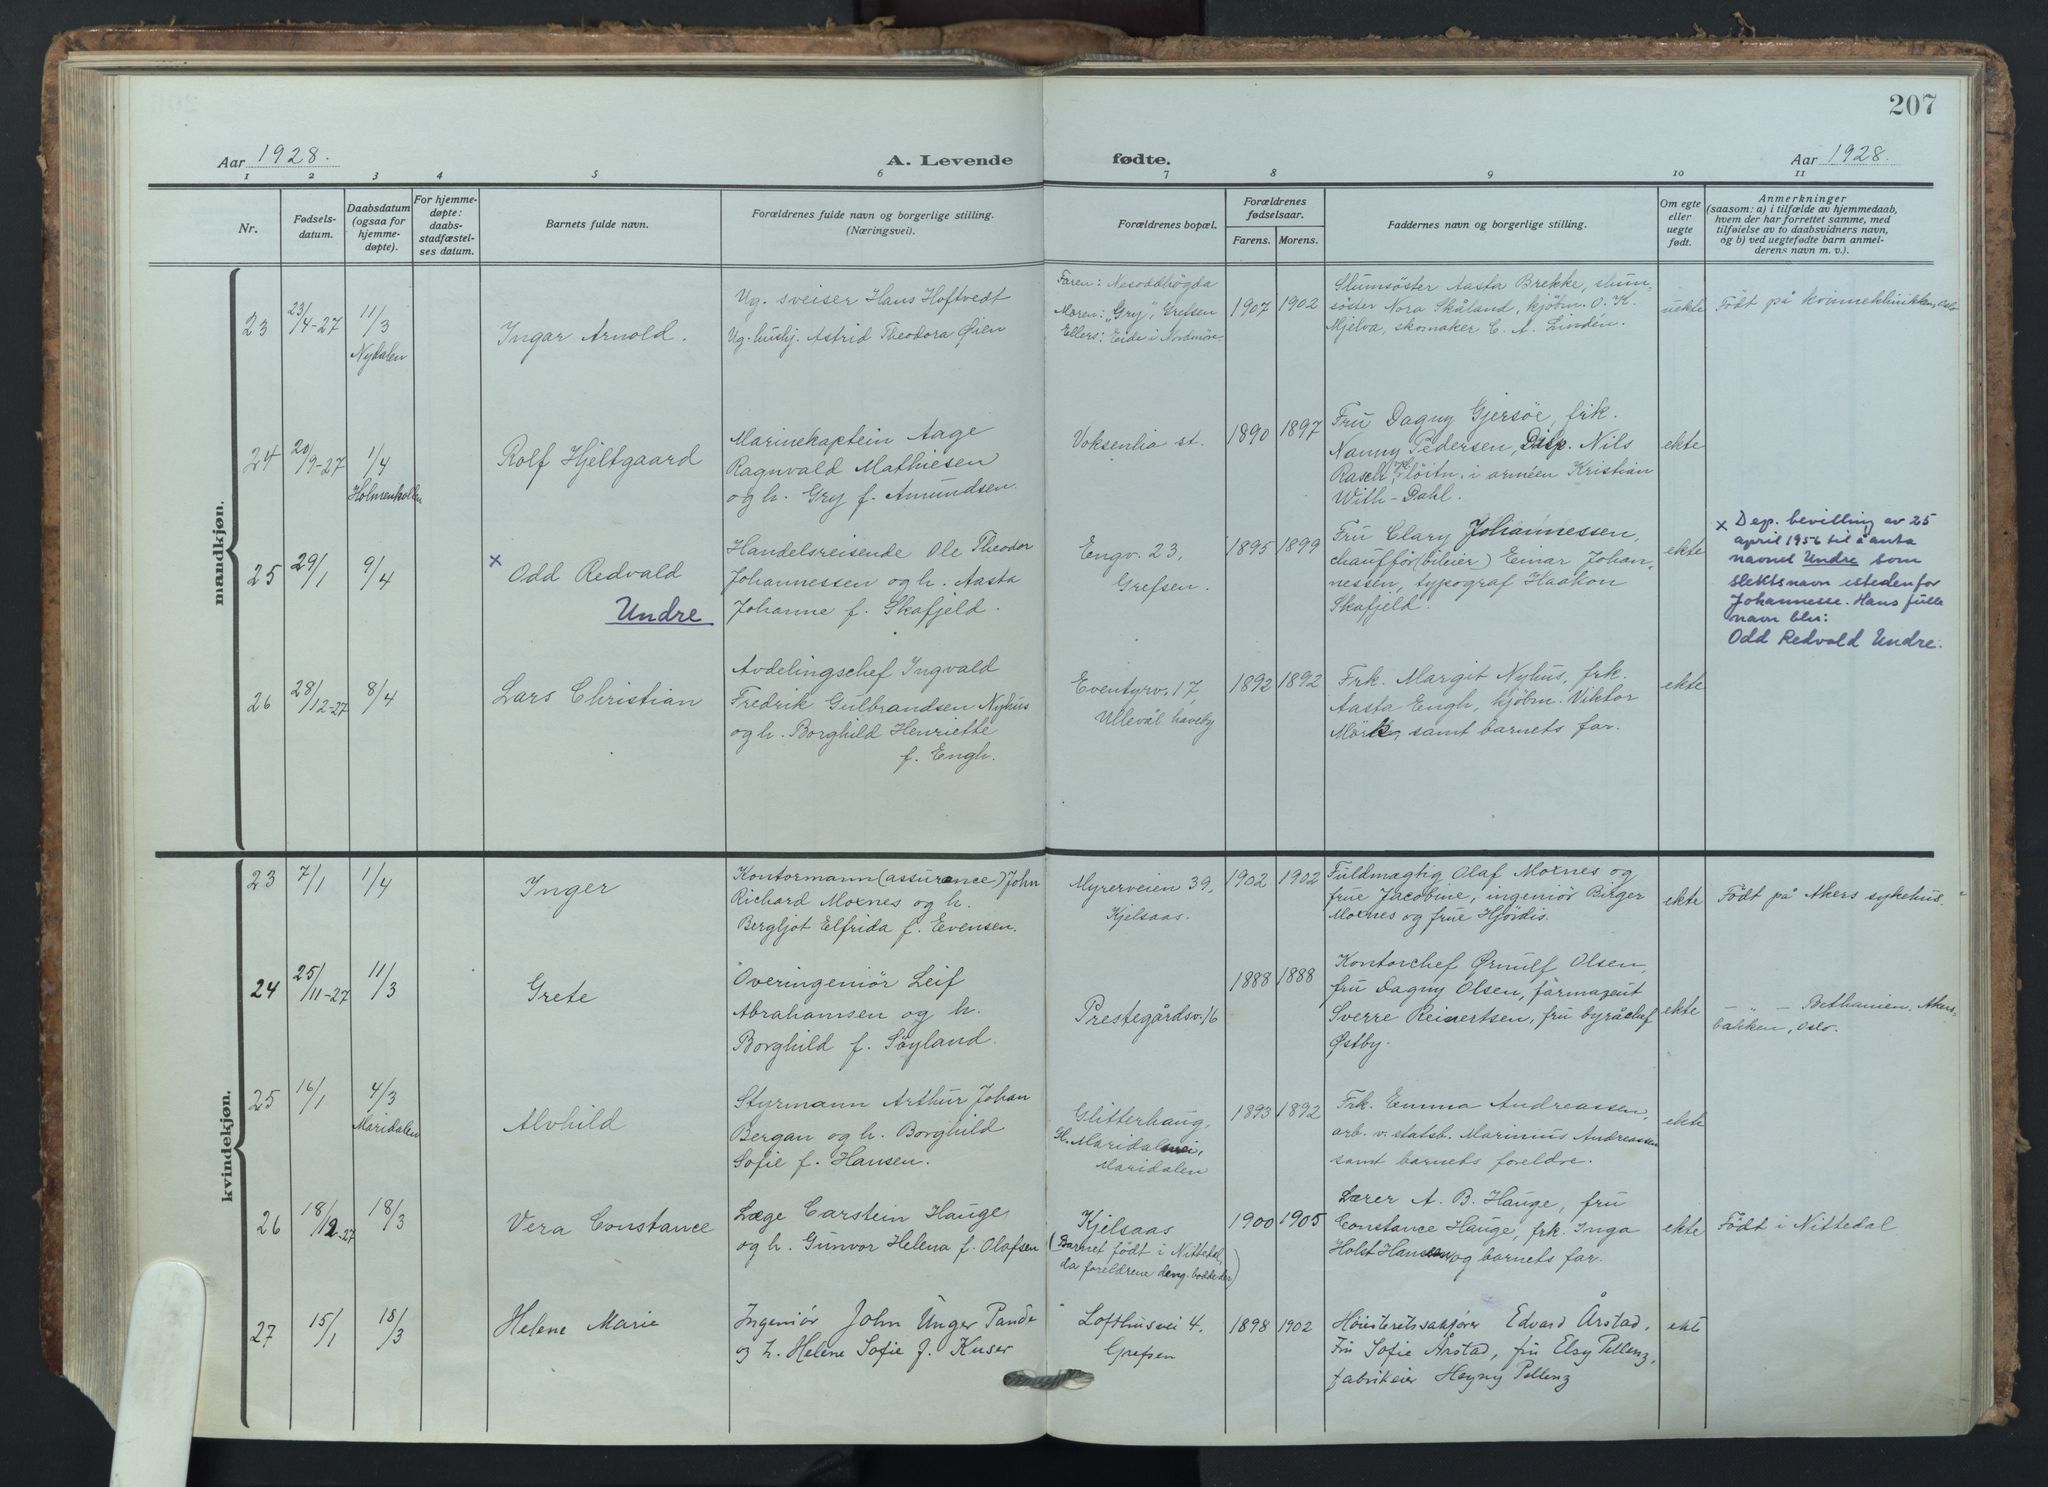 207
Aar 1928. A. Levende fødte. Aar 1928.
1 2 3 4 5 6 7 8 9 10 11
Nr.
Fødsels-
datum.
Daabsdatum
(ogsaa for
hjemme-
døpte).
For hjemme-
døpte:
daabs-
stadfæstel-
ses datum.
Barnets fulde navn.
Forældrenes fulde navn og borgerlige stilling.
(Næringsvei).
Forældrenes bopæl.
Forældrenes
fødselsaar.
Farens. Morens.
Faddernes navn og borgerlige stilling.
Om egte
eller
uegte
født.
Anmerkninger
(saasom: a) i tilfælde av hjemmedaab,
hvem der har forrettet samme, med
tilføielse av to daabsvidners navn,
og b) ved uegtefødte barn anmel-
derens navn m. v.).
mandkjøn.
23
23/4-27
11/3
Nydalen
Ingar Arnold.
Ug. sveiser Hans Hoftvedt
Ug. hushj. Astrid Theodora Øien
Faren: Nesoddhøgda
Moren: "Gry", Grefsen
Ellers: Eide i Nordmøre.
1907 1902
Slumsøster Aasta Brekke, slum-
søster Nora Skåland, kjøbm. O. K.
Mjelva, skomaker C. A. Lindén.
uekte
Født på kvinneklinikken, Oslo
24
20/9-27
1/4
Holmenkollen
Rolf Hjeltgaard
Marinekaptein Aage
Ragnvald Mathiesen
og h. Gry f. Amundsen.
Voksenlia st.
1890 1897
Fru Dagny Gjersøe, frk.
Nanny Pedersen, Disp. Nils
Rasch, løitn. i arméen Kristian
With-Dahl.
ekte
25
29/1
9/4
× Odd Redvald
Undre
Handelsreisende Ole Theodor
Johannessen og h. Aasta
Johanne f. Skafjeld.
Engv. 23,
Grefsen.
1895 1899
Fru Clary Johannessen,
chauffør (bileier) Einar Johan-
nessen, typograf Haakon
Skafjeld.
ekte
× Dep. bevilling av 25
april 1956 til å anta
navnet Undre som
slektsnavn istedenfor
Johannesse. Hans fulle
navn blir:
Odd Redvald Undre.
26
28/12-27
8/4
Lars Christian
Avdelingschef Ingvald
Fredrik Gulbrandsen Nyhus
og h. Borghild Henriette
f. Engh.
Eventyrv. 17,
Ullevål haveby
1892 1892
Frk. Margit Nyhus, frk.
Aasta Engh, kjøbm. Viktor
Mörk, samt barnets far.
ekte
kvindekjøn.
23
7/1
1/4
Inger
Kontormann (assurance) John
Richard Moxnes og h.
Bergljot Elfrida f. Evensen.
Myrerveien 39,
Kjelsaas.
1902 1902
Fuldmægtig Olaf Moxnes og
frue Jacobine, ingeniør Birger
Moxnes og frue Hjørdis.
ekte
Født på Akers sykehus.
24
25/11-27
11/3
Grete
Overingeniør Leif
Abrahamsen og h.
Borghild f. Søyland.
Prestegårdsv. 16
1888 1888
Kontorchef Ørnulf Olsen,
fru Dagny Olsen, farmasøit
Sverre Reinertsen, fru byråchef
Østby.
ekte
— " — Bethanien, Akers-
bakken, Oslo.
25
16/1
4/3
Maridalen
Alvhild
Styrmann Arthur Johan
Bergan og h. Borghild
Sofie f. Hansen.
Glitterhaug,
Gl. Maridalsvei,
Maridalen
1893 1892
Frk. Emma Andreassen,
arb. v. statsb. Marinius Andreassen
samt barnets foreldre.
ekte
26
18/12-27
18/3
Vera Constance
Læge Carstein Hauge
og h. Gunvor Helena f. Olafsen
Kjelsaas
(Barnet født i Nittedal,
da foreldrene deng. bodde der)
1900 1905
Lærer A. B. Hauge, fru
Constance Hauge, frk. Inga
Holst Hansen og barnets far.
ekte
Født i Nittedal
27
15/1
18/3
Helene Marie
Ingeniør John Unger Pande
og h. Helene Sofie f. Kuser
Lofthusvei 4.
Grefsen
1898 1902
Høiesteretsadvokat Edvard Årstad,
Fru Sofie Årstad, fru Elsy Pellenz,
fabrikeier Heyny Pellenz
ekte